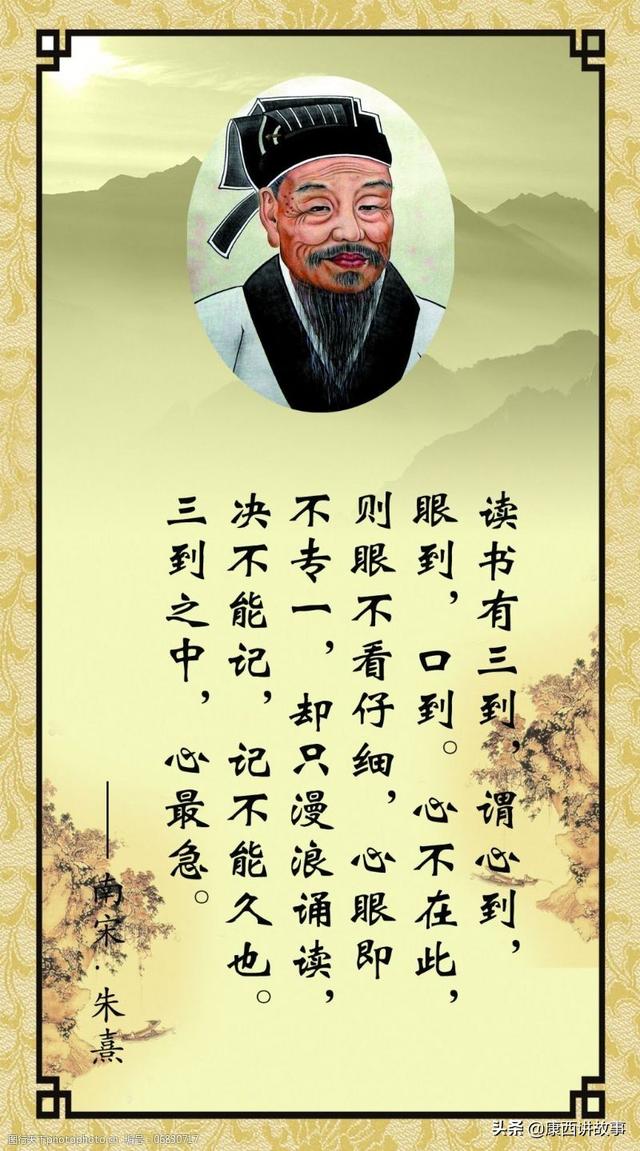 读书有三到，谓心到，
眼到，口到。心不在此，
则眼不看仔细，心眼即
不专一，却只漫浪诵读，
决不能记，记不能久也。
三到之中，心最急。
——南宋·朱熹
图行天下photophoto.cn 编号：06830717
头条 @康西讲故事